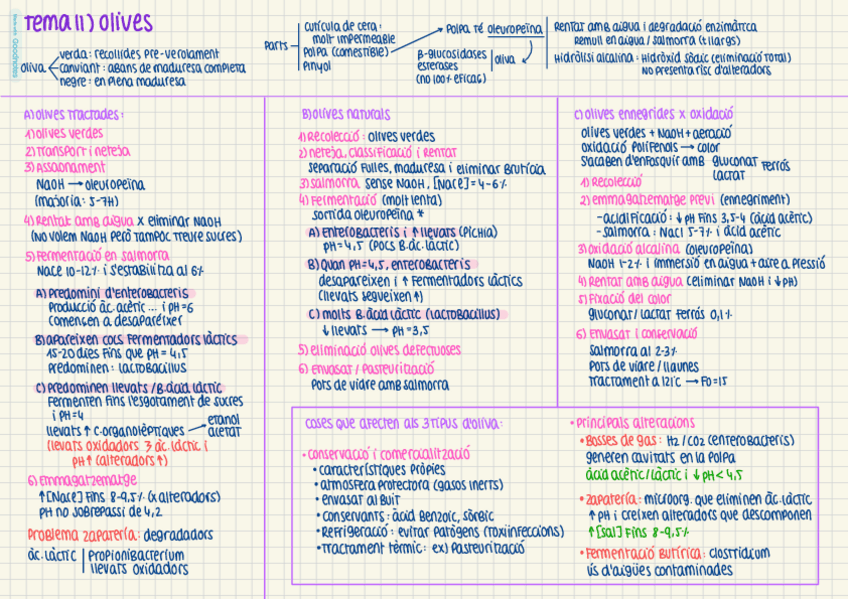 Tema 11) Olives
oliva
verda: recollides pre-verolament
canviant: abans de maduresa completa
negre: en plena maduresa
Parts
cutícula de cera:
molt impermeable
Polpa (comestible)
Pinyol
Polpa té oleuropeïna
β-glucosidases
esterases
(no 100% eficaç)
oliva
Rentar amb aigua i degradació enzimàtica
Remull en aigua / salmorra (t llargs)
Hidròlisi alcalina: Hidròxid sòdic (eliminació total)
No presenta risc d'alteradors
A) Olives tractades:
1) Olives verdes
2) Transport i neteja
3) Assaonament
NaOH → oleuropeïna
(majoria: 5-7H)
4) Rentat amb aigua x eliminar NaOH
(No volem NaOH però tampoc treure sucres)
5) Fermentació en salmorra
NaCl 10-12% i s'estabilitza al 6%
A) Predomini d'enterobacteris
Producció àc. acètic ... i pH=6
Comencen a desaparèixer
B) Apareixen cocs fermentadors làctics
15-20 dies fins que pH = 4,5
Predominen: lactobacillus
C) Predominen llevats / B. àcid làctic
Fermenten fins l'esgotament de sucres
i pH=4
llevats ↑ c. organolèptiques → etanol
acetat
(llevats oxidadors } àc. làctic i
pH↑ (alteradors ↑)
6) Emmagatzematge
↑[NaCl] fins 8-9,5% (x alteradors)
pH no sobrepassi de 4,2
Problema zapateria: degradadors
àc. làctic | Propionibacterium
llevats oxidadors
B) Olives naturals
1) Recolecció: olives verdes
2) neteja, classificació i rentat
separació fulles, maduresa i eliminar brutícia
3) salmorra sense NaOH, [NaCl] = 4-6%
4) Fermentació (molt lenta)
sortida oleuropeïna *
A) Enterobacteris i ↑ llevats (Pichia)
pH = 4,5 (pocs B. àc. làctic)
B) Quan pH = 4,5, enterobacteris
desapareixen i ↑ Fermentadors làctics
(llevats segueixen ↑)
C) molts B. àcid làctic (lactobacillus)
↓ llevats → pH = 3,5
5) eliminació olives defectuoses
6) Envasat / Pasteurització
Pots de vidre amb salmorra
C) Olives ennegrides x oxidació
olives verdes + NaOH + aeració
oxidació polifenols → color
S'acaben d'enfosquir amb gluconat
lactat
ferrós
1) Recolecció
2) emmagatzematge previ (ennegriment)
- acidificació: ↓ pH fins 3,5-4 (àcid acètic)
- salmorra: NaCl 5-7% i àcid acètic
3) Oxidació alcalina (oleuropeïna)
NaOH 1-2% i immersió en aigua + aire a pressió
4) Rentat amb aigua (eliminar NaOH i ↓pH)
5) Fixació del color
gluconat / lactat ferrós 0,1%
6) Envasat i conservació
salmorra al 2-3%
Pots de vidre / llaunes
tractament a 121ºC → F0=15
Coses que afecten als 3 tipus d'oliva:
• Conservació i comercialització
• característiques pròpies
• atmosfera protectora (gasos inerts)
• envasar al buit
• Conservants: àcid benzoic, sòrbic
• Refrigeració: evitar patògens (toxiinfeccions)
• Tractament tèrmic: ex) Pasteurització
• Principals alteracions
• Bosses de gas: H2 / CO2 (enterobacteris)
generen cavitats en la polpa
àcid acètic / làctic i ↓ pH < 4,5
• zapateria: microorg. que eliminen àc. làctic
↑ pH i creixen alteradors que descomponen
↑ [sal] fins 8-9,5%
• Fermentació butírica: clostridium
ús d'aigües contaminades